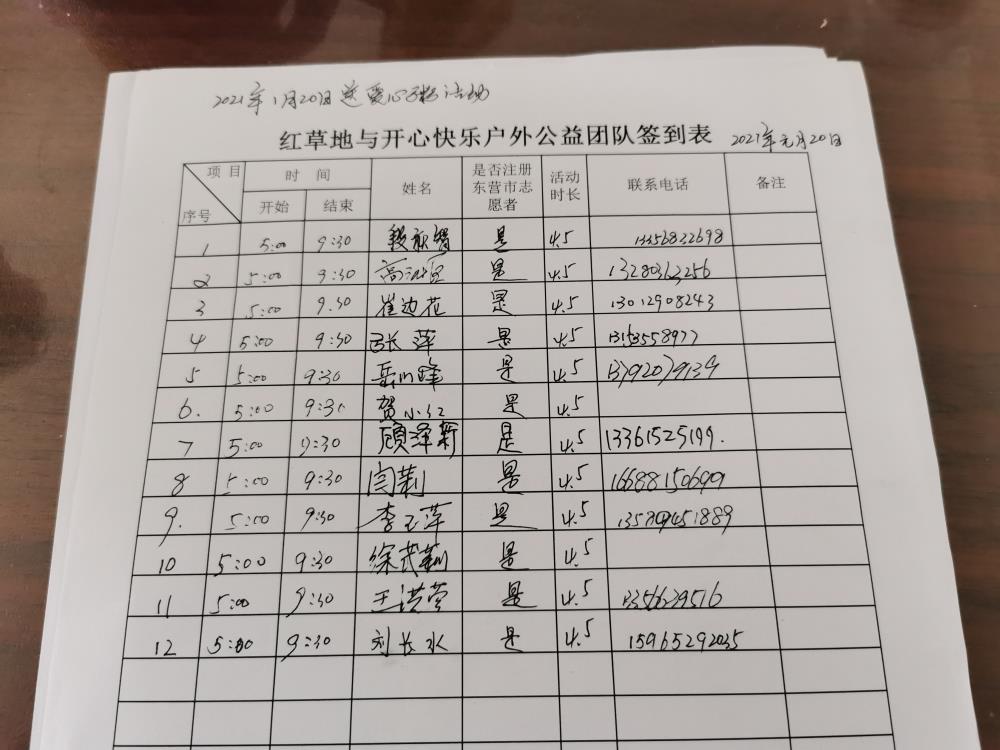 2021年1月20日送爱心粥活动
红草地与开心快乐户外公益团队签到表 2021年元月20日
项目 序号 时间 开始 结束 姓名 是否注册东营市志愿者 活动时长 联系电话 备注
1 5:00 9:30 是 4.5 13356832698
2 5:00 9:30 是 4.5 13280362256
3 5:00 9:30 崔边花 是 4.5 13012908243
4 5:00 9:30 张萍 是 4.5
5 5:00 9:30 岳小峰 是 4.5 13792079134
6. 5:00 9:30 贺小红 是 4.5
7 5:00 9:30 顾泽新 是 4.5 13361525199.
8 5:00 9:30 闫莉 是 4.5 16688150699
9. 5:00 9:30 李玉萍 是 4.5
10 5:00 9:30 徐武莉 是 4.5
11 5:00 9:30 王洪莹 是 4.5
12 5:00 9:30 刘长水 是 4.5